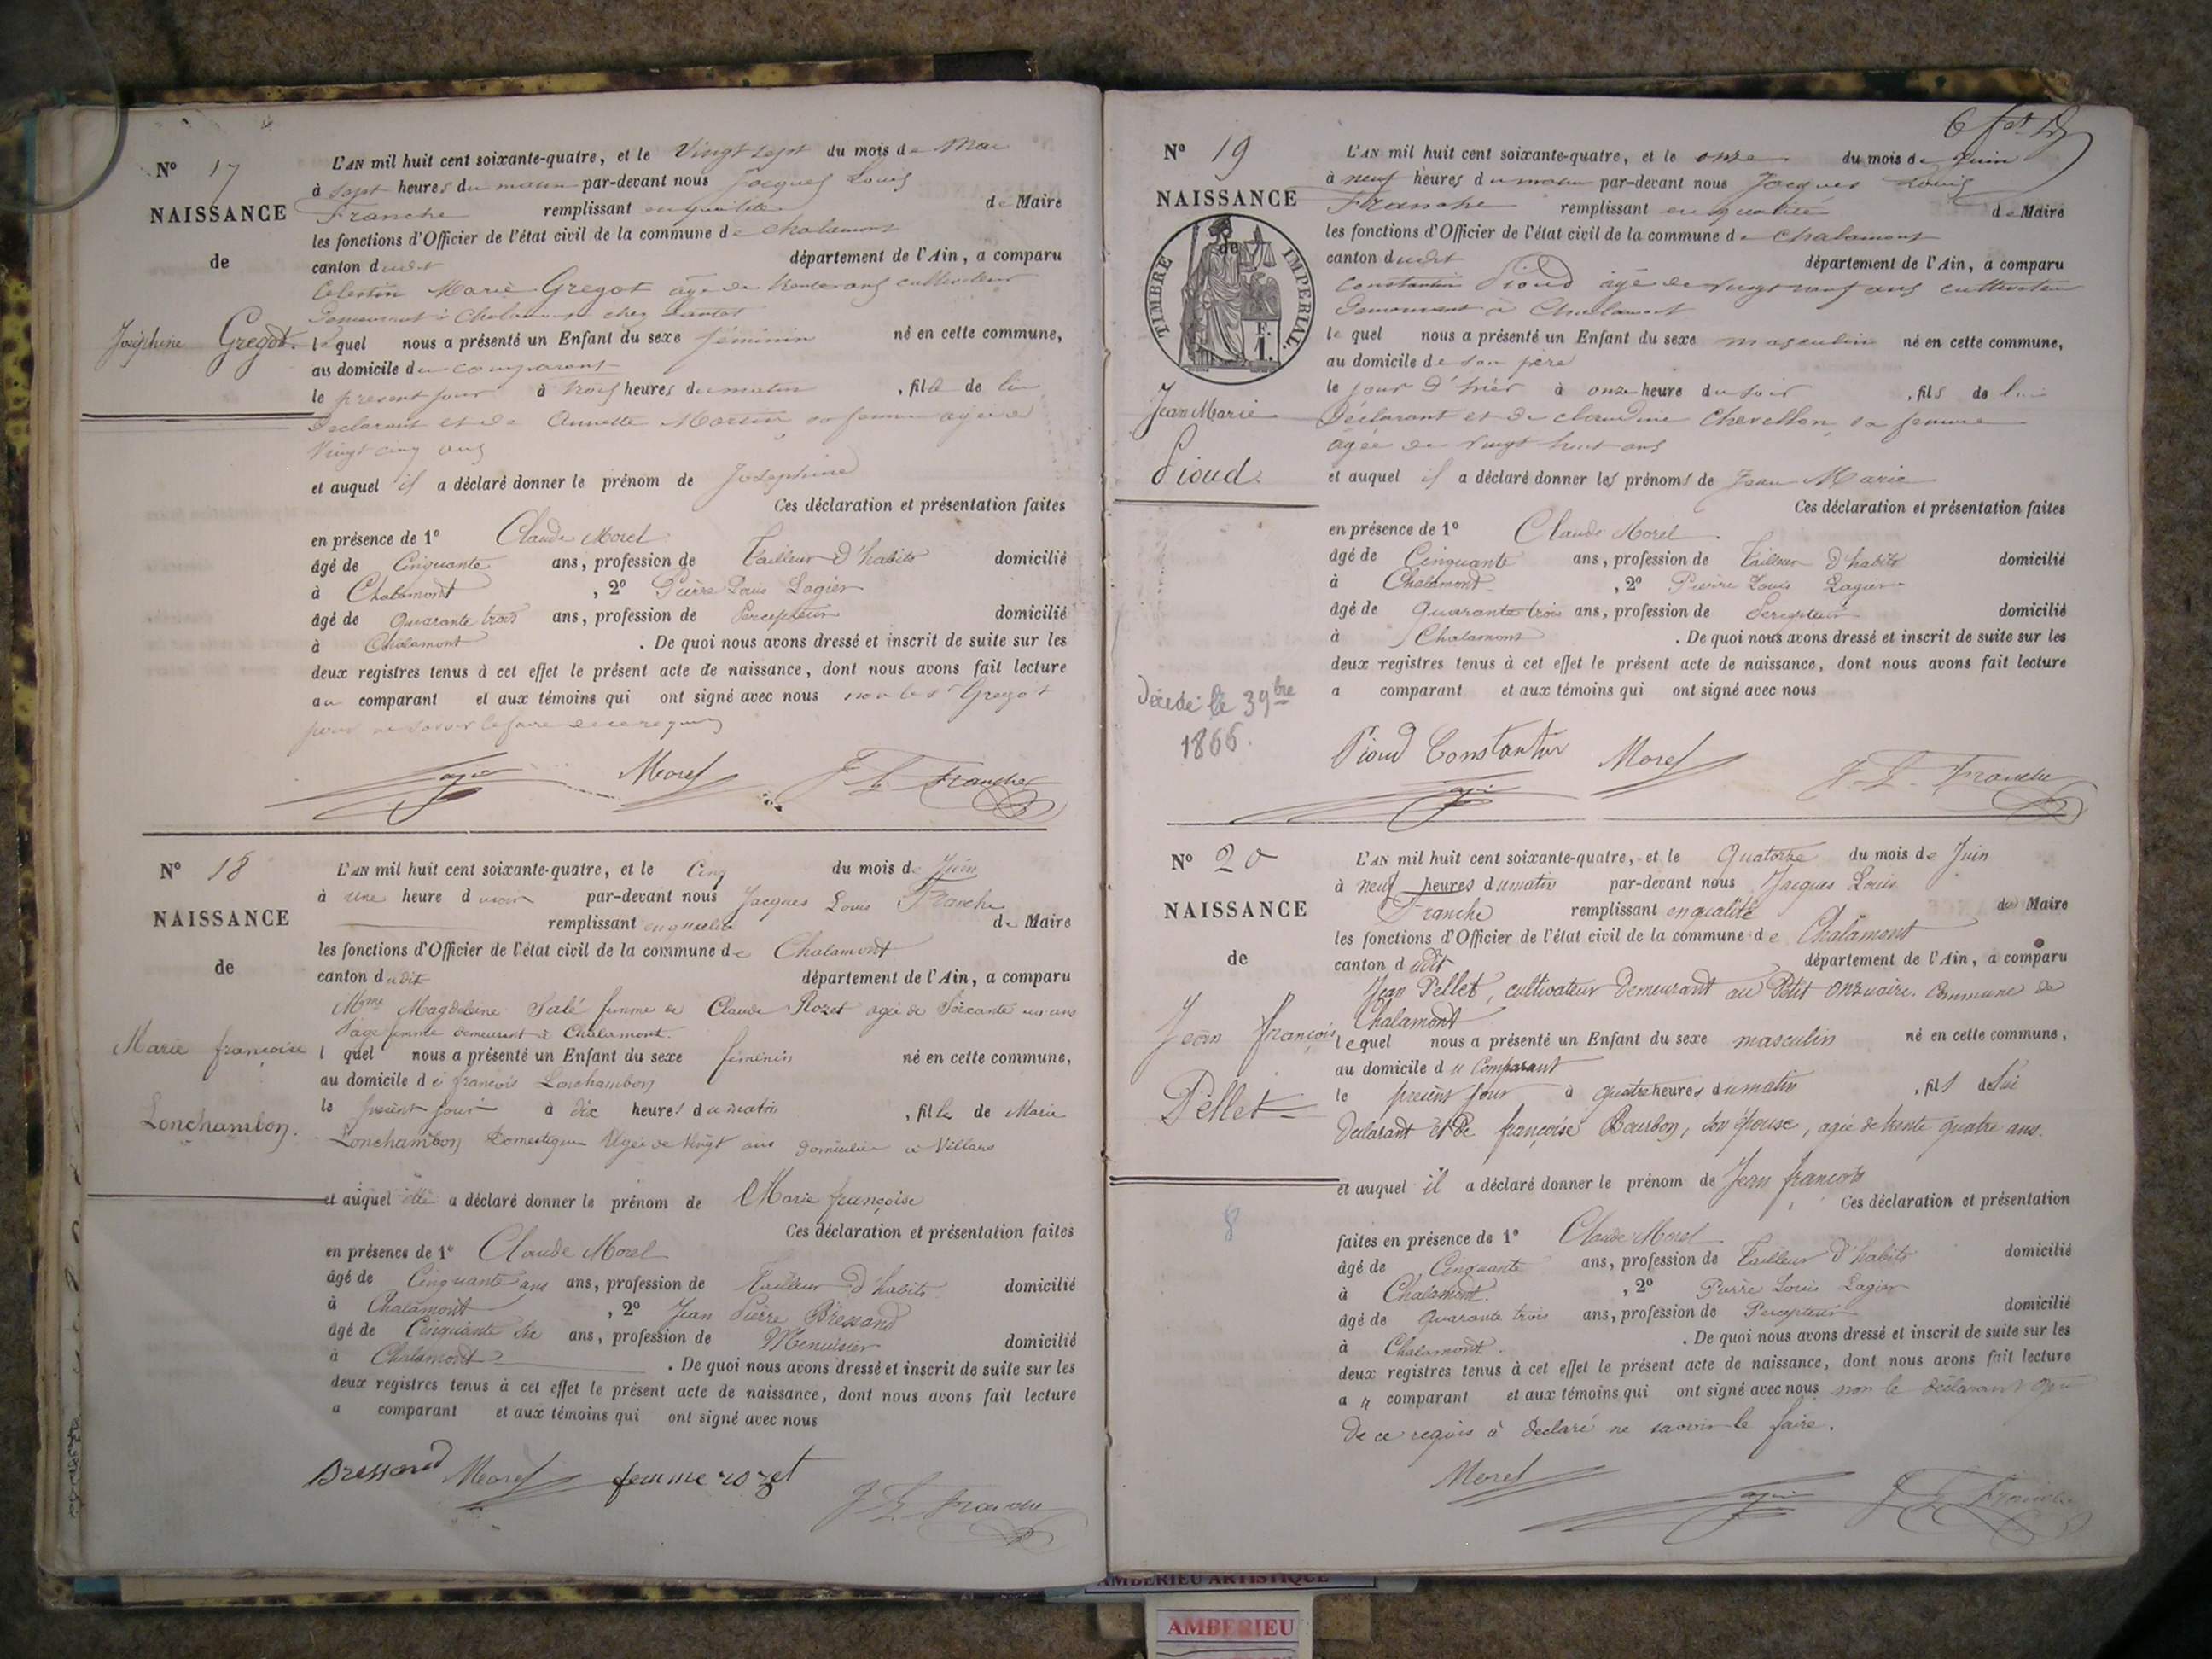 N° 17
NAISSANCE
de
Joséphine Gregot.
L'AN mil huit cent soixante-quatre, et le Vingt sept du mois de Mai
à sept heures du matin par-devant nous Jacques Louis
Franche remplissant en qualité de Maire
les fonctions d'Officier de l'état civil de la commune de Chalamont
canton dudit département de l'Ain, a comparu
Celestin Marie Gregot âgé de trente ans cultivateur
Demeurant à Chalamont chez
le quel nous a présenté un Enfant du sexe féminin né en cette commune,
au domicile du comparant
le présent jour à trois heures du matin , fille de lui
Déclarant et de Annette Martin sa femme agée de
Vingt cinq ans
et auquel il a déclaré donner le prénom de Joséphine
Ces déclaration et présentation faites
en présence de 1° Claude Morel
âgé de Cinquante ans, profession de Tailleur d'habits domicilié
à Chalamont , 2° Pierre Louis Lagier
âgé de Quarante trois ans, profession de Percepteur domicilié
à Chalamont . De quoi nous avons dressé et inscrit de suite sur les
deux registres tenus à cet effet le présent acte de naissance, dont nous avons fait lecture
au comparant et aux témoins qui ont signé avec nous non led. Gregot
pour ne savoir le faire de ce requis
Lagier Morel J. L. Franche
N° 18
NAISSANCE
de
Marie françoise
Lonchambon.
L'AN mil huit cent soixante-quatre, et le Cinq du mois de Juin
à une heure du soir par-devant nous Jacques Louis Franche
remplissant en qualité de Maire
les fonctions d'Officier de l'état civil de la commune de Chalamont
canton dudit département de l'Ain, a comparu
Mme Magdeleine femme de Claude Rozet agée de Soixante un ans
Sage femme demeurant à Chalamont.
l quel nous a présenté un Enfant du sexe féminin né en cette commune,
au domicile de françois Lonchambon
le présent jour à dix heures du matin , fille de Marie
Lonchambon Domestique Agée de Vingt ans domiciliée à Villars
et auquel elle a déclaré donner le prénom de Marie françoise
Ces déclaration et présentation faites
en présence de 1° Claude Morel
âgé de Cinquante ans ans, profession de Tailleur d'habits domicilié
à Chalamont , 2° Jean Pierre Bressand
âgé de Cinquante six ans, profession de Menuisier domicilié
à Chalamont . De quoi nous avons dressé et inscrit de suite sur les
deux registres tenus à cet effet le présent acte de naissance, dont nous avons fait lecture
a comparant et aux témoins qui ont signé avec nous
Bressand Morel femme rozet
J L Franche
N° 19
NAISSANCE
de
TIMBRE IMPÉRIAL.
F. 1.
Jean Marie
Pioud.
Décédé le 3 9bre
1866.
L'AN mil huit cent soixante-quatre, et le onze du mois de Juin
à neuf heures du matin par-devant nous Jacques Louis
Franche remplissant en qualité de Maire
les fonctions d'Officier de l'état civil de la commune de Chalamont
canton dudit département de l'Ain, a comparu
Constantin Pioud âgé de vingt neuf ans cultivateur
Demeurant à Chalamont
le quel nous a présenté un Enfant du sexe masculin né en cette commune,
au domicile de son père
le jour d'hier à onze heure du soir , fils de lui
Déclarant et de claudine Chevellon sa femme
agée de vingt huit ans
et auquel il a déclaré donner les prénoms de Jean Marie
Ces déclaration et présentation faites
en présence de 1° Claude Morel
âgé de Cinquante ans, profession de Tailleur d'habits domicilié
à Chalamont , 2° Pierre Louis Lagier
âgé de Quarante trois ans, profession de Percepteur domicilié
à Chalamont . De quoi nous avons dressé et inscrit de suite sur les
deux registres tenus à cet effet le présent acte de naissance, dont nous avons fait lecture
a comparant et aux témoins qui ont signé avec nous
Pioud Constantin Morel J. L. Franche
Lagier
N° 20
NAISSANCE
de
Jean françois
Pellet
8
L'AN mil huit cent soixante-quatre, et le Quatorze du mois de Juin
à neuf heures du matin par-devant nous Jacques Louis
Franche remplissant en qualité de Maire
les fonctions d'Officier de l'état civil de la commune de Chalamont
canton dudit département de l'Ain, a comparu
Jean Pellet, cultivateur Demeurant au Petit Onzuaire. Commune de
Chalamont
lequel nous a présenté un Enfant du sexe masculin né en cette commune,
au domicile du Comparant
le présent jour à quatre heures du matin , fils de lui
Déclarant et de françoise Bourbon, son épouse, agée de trente quatre ans.
et auquel il a déclaré donner le prénom de Jean françois
Ces déclaration et présentation
faites en présence de 1° Claude Morel
âgé de Cinquante ans, profession de Tailleur d'habits domicilié
à Chalamont. , 2° Pierre Louis Lagier
âgé de Quarante trois ans, profession de Percepteur domicilié
à Chalamont. . De quoi nous avons dressé et inscrit de suite sur les
deux registres tenus à cet effet le présent acte de naissance, dont nous avons fait lecture
au comparant et aux témoins qui ont signé avec nous non le déclarant qui
de ce requis à déclaré ne savoir le faire.
Morel Lagier J L Franche
AMBERIEU ARTISTIQUE
AMBERIEU